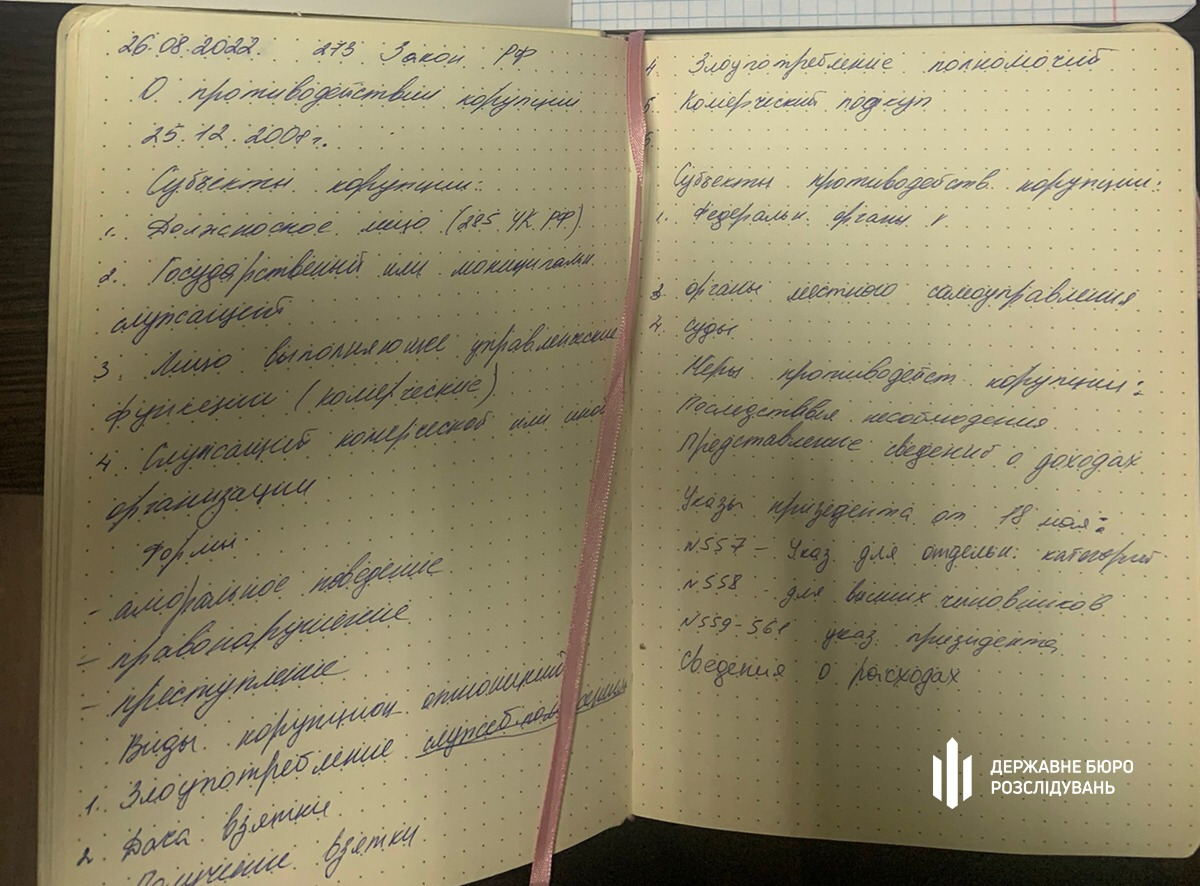 26.08.2022. 273 Закон РФ
О противодействии корупции
25.12.2008г.
Субъекты корупции:
1. Должносное лицо (285 УК РФ)
2. Государственный или мониципальн.
служащий
3. Лицо выполняющее управленческие
функции (комерческие)
4 Служащий комерческой или иной
организации
Формы:
- аморальное поведение
- правонарушение
- преступление
Виды корупцион отношений
1. Злоупотребление служеб.
2. Дача взятки
Получение взятки
4. Злоупотребление полномочий
5. Комерческий подкуп
6.
Субъекты противодейств. корупции:
1. Федеральн. органы
3. органы местного самоуправления
4. суды
Меры противодейст корупции:
Последствия несоблюдения
Представление сведений о доходах
Указы призедента от 18 мая:
N557 - Указ для отдельн. категорий
N558 - для высших чиновников
N559-561 указ призидента
Сведения о расходах
ДЕРЖАВНЕ БЮРО
РОЗСЛІДУВАНЬ